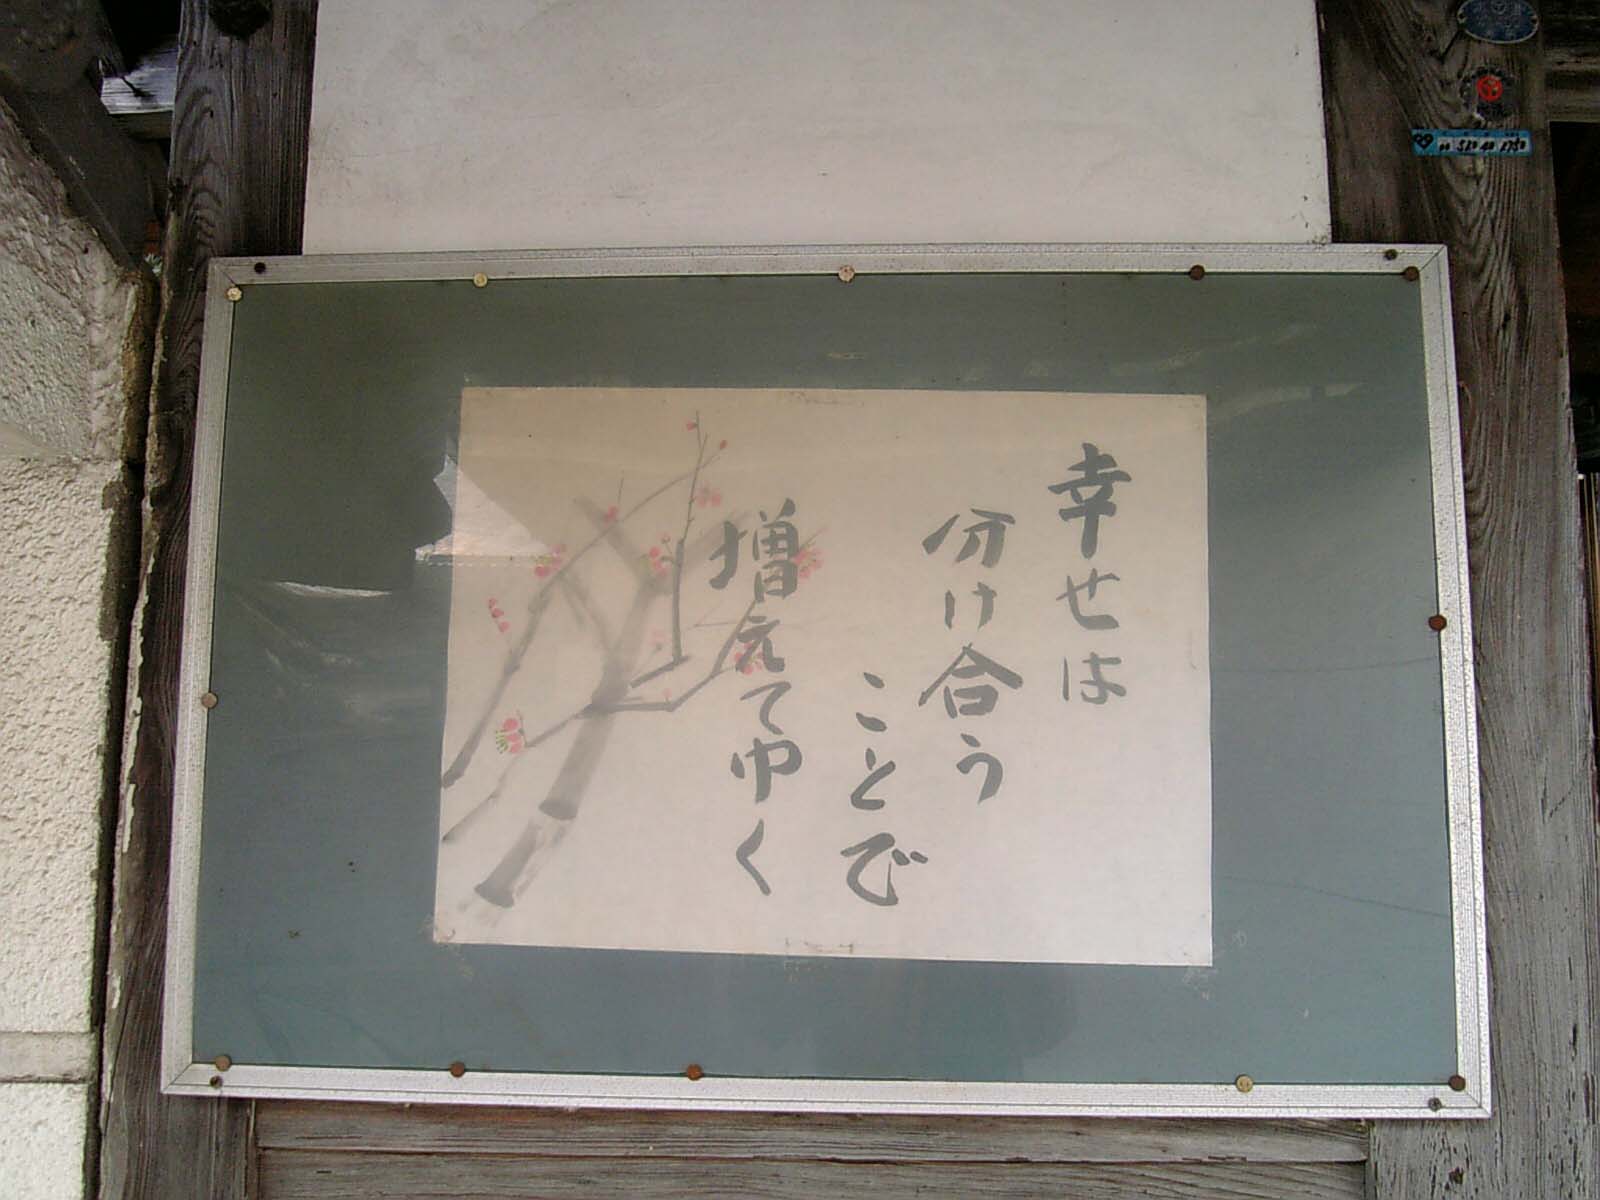 幸せは
分け合う
ことで
増えてゆく